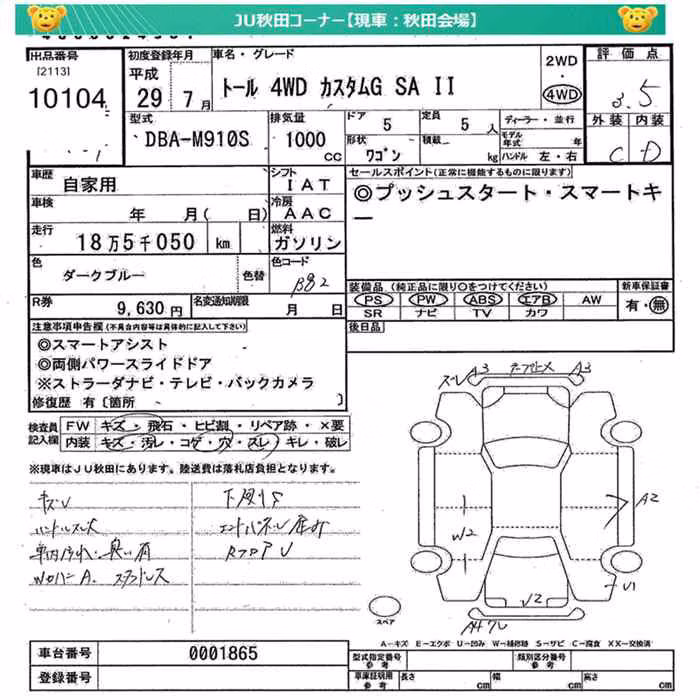 JU秋田コーナー【現車：秋田会場】
出品番号
[2113]
10104
初度登録年月
平成
29 7月
車名・グレード
トール 4WD カスタムG SA II
2WD
・
4WD
評価点
3.5
外装 内装
C D
型式
DBA-M910S
排気量
1000
cc
ドア
5
定員
5 人
形状
ワゴン
積載
kg
ディーラー・並行
モデル年式
年
ハンドル 左・右
車歴
自家用
シフト
IAT
車検
年 月( 日)
冷房
AAC
走行
18万5千050 km
燃料
ガソリン
色
ダークブルー
色替
色コード
R券
9,630円
名変通知期限
月 日
セールスポイント(正常に機能するものに限ります)
◎プッシュスタート・スマートキ
ー
装備品(純正品に限り○をつけてください)
PS PW ABS エアB AW
SR ナビ TV カワ
新車保証書
有・無
後日品
注意事項申告欄(不具合内容等は具体的に記入して下さい)
◎スマートアシスト
◎両側パワースライドドア
※ストラーダナビ・テレビ・バックカメラ
修復歴 有〔箇所 〕
検査員記入欄
FW キズ・飛石・ヒビ割・リペア跡・×要
内装 キズ・汚レ・コゲ・穴・スレ・キレ・破レ
※現車はJU秋田にあります。陸送費は落札店負担となります。
キズU
ハンドルスレ大
車内汚れ・臭い有
スタッドレス
下廻りS
エンドパネル
RフロアU
ズレ
A3
A3
A2
W2
U1
V2
スペア
A-キズ E-エクボ U-凹み W-補修跡 S-サビ C-腐食 XX-交換済
車台番号 0001865
登録番号
型式指定番号
参考
類別区分番号
参考
車庫証明用
参考
長さ cm
幅 cm
高さ cm